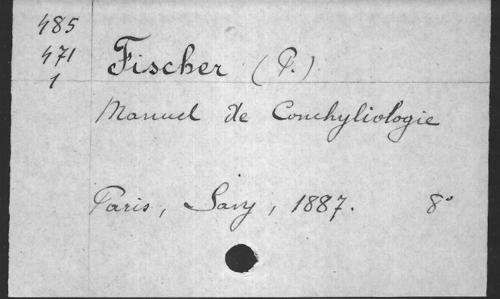 485
471
1
Fischer (P.)
Manuel de Conchyliologie
Paris, Savy, 1887. 8°